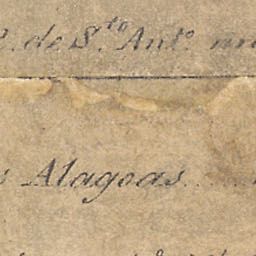 de S.to Ant.o
Alagoas